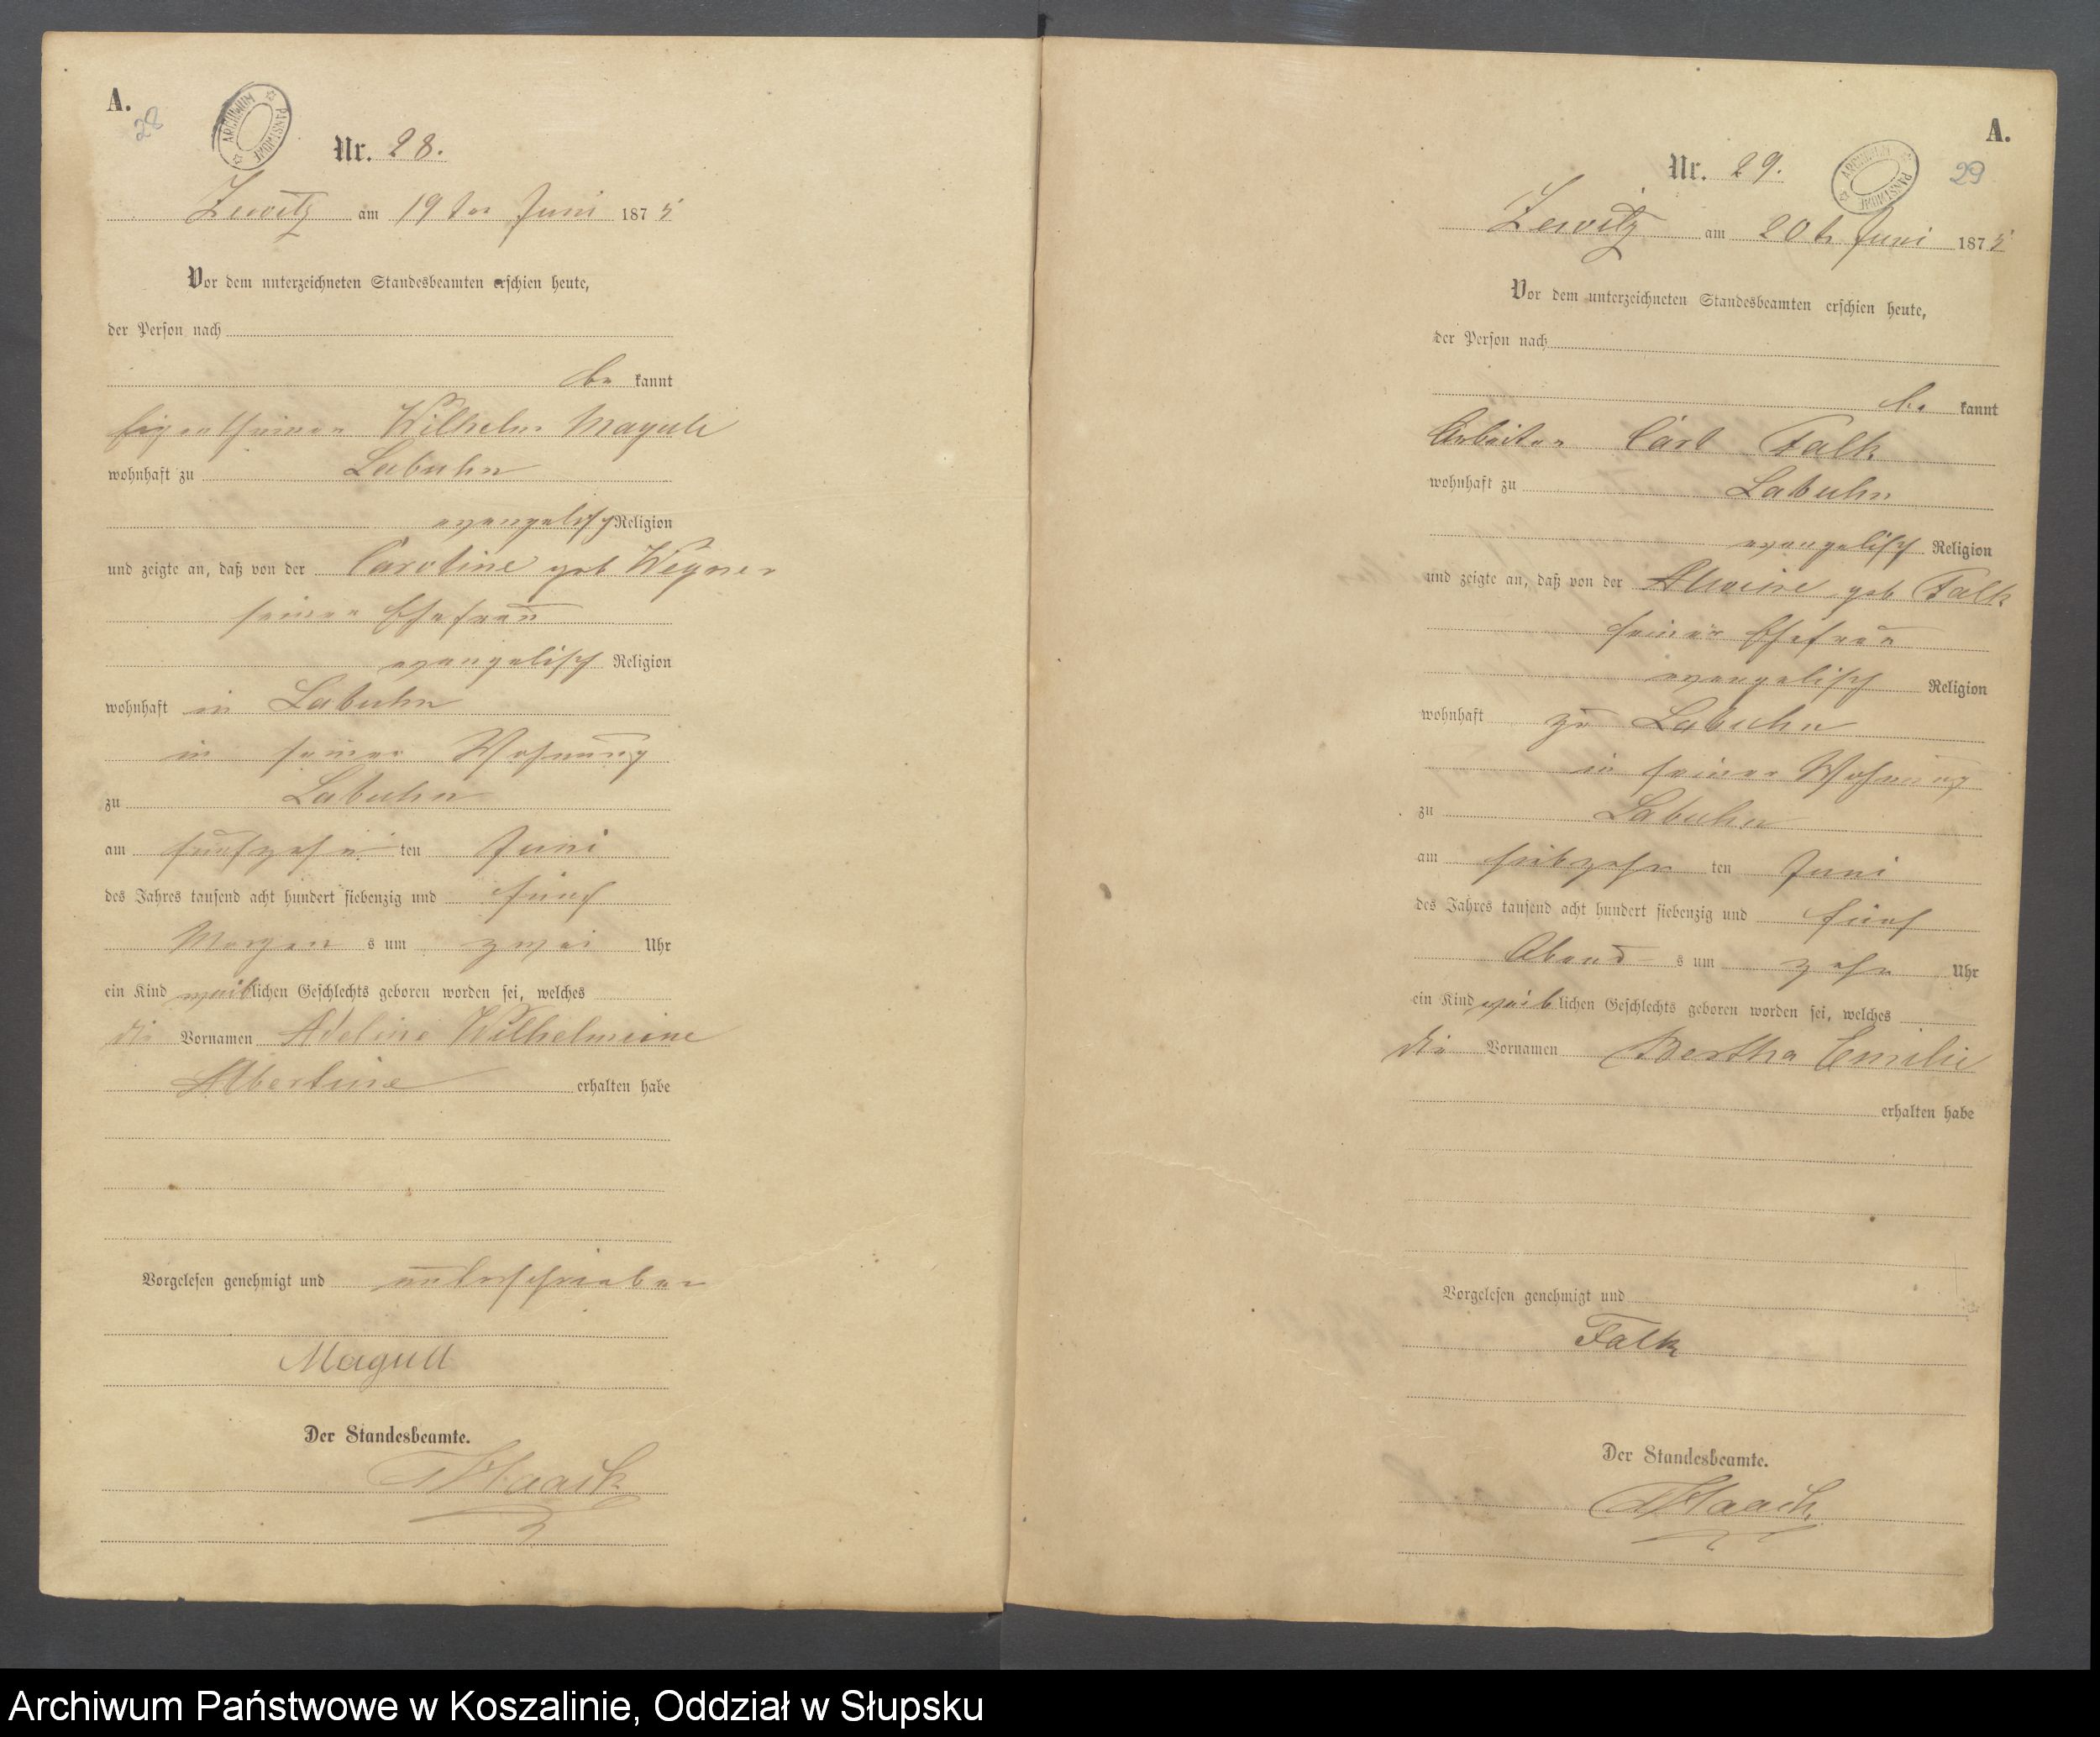 A.
28
ARCHIWUM PAŃSTWOWE
Nr. 28.
Zewitz am 19ten Juni 1875
Vor dem unterzeichneten Standesbeamten erschien heute,
der Person nach
be kannt
Eigenthümer Wilhelm Magull
wohnhaft zu Labuhn
evangelisch Religion
und zeigte an, daß von der Caroline geb Wegner
seiner Ehefrau
evangelisch Religion
wohnhaft in Labuhn
in seiner Wohnung
zu Labuhn
am fünfzehn ten Juni
des Jahres tausend acht hundert siebenzig und fünf
Morgen s um zwei Uhr
ein Kind weiblichen Geschlechts geboren worden sei, welches
die Vornamen Adeline Wilhelmine
Albertine erhalten habe
Vorgelesen genehmigt und unterschrieben
Magull
Der Standesbeamte.
Haack
A.
29
ARCHIWUM PAŃSTWOWE
Nr. 29.
Zewitz am 20t Juni 1875
Vor dem unterzeichneten Standesbeamten erschien heute,
der Person nach
be kannt
Arbeiter Carl Falk
wohnhaft zu Labuhn
evangelisch Religion
und zeigte an, daß von der Alwine geb Falk
seiner Ehefrau
evangelisch Religion
wohnhaft zu Labuhn
in seiner Wohnung
zu Labuhn
am siebzehn ten Juni
des Jahres tausend acht hundert siebenzig und fünf
Abend s um zehn Uhr
ein Kind weiblichen Geschlechts geboren worden sei, welches
die Vornamen Bertha Emilie
erhalten habe
Vorgelesen genehmigt und
Falk
Der Standesbeamte.
Haack
Archiwum Państwowe w Koszalinie, Oddział w Słupsku